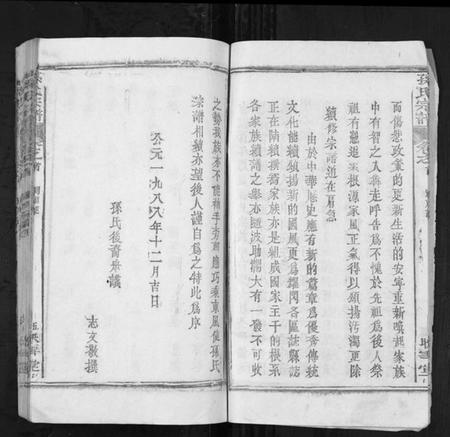 孫氏宗譜
卷之首
而傷感政策的更新生活的安寧重新喚起家族
中有智之人奔走呼告爲不愧於先祖爲後人祭
祖有懸追求根源家風正氣得以頌揚活濁更除
續修宗譜迫在眉急
由於中華歷史應有新的篇章爲優秀傳統
文化能續頌新的國風更爲耀閃各區誌縣誌
正在陸續撰著家族亦是組成國家主干的根系
各家族續譜之舉亦隨波助瀾大有一發不可收
之勢我本族不能袖手旁觀應巧乘東風使孫氏
宗譜相續亦望後人謹自爲之特此爲序
公元一九八八年十二月吉日
孫氏後裔
志文敬撰